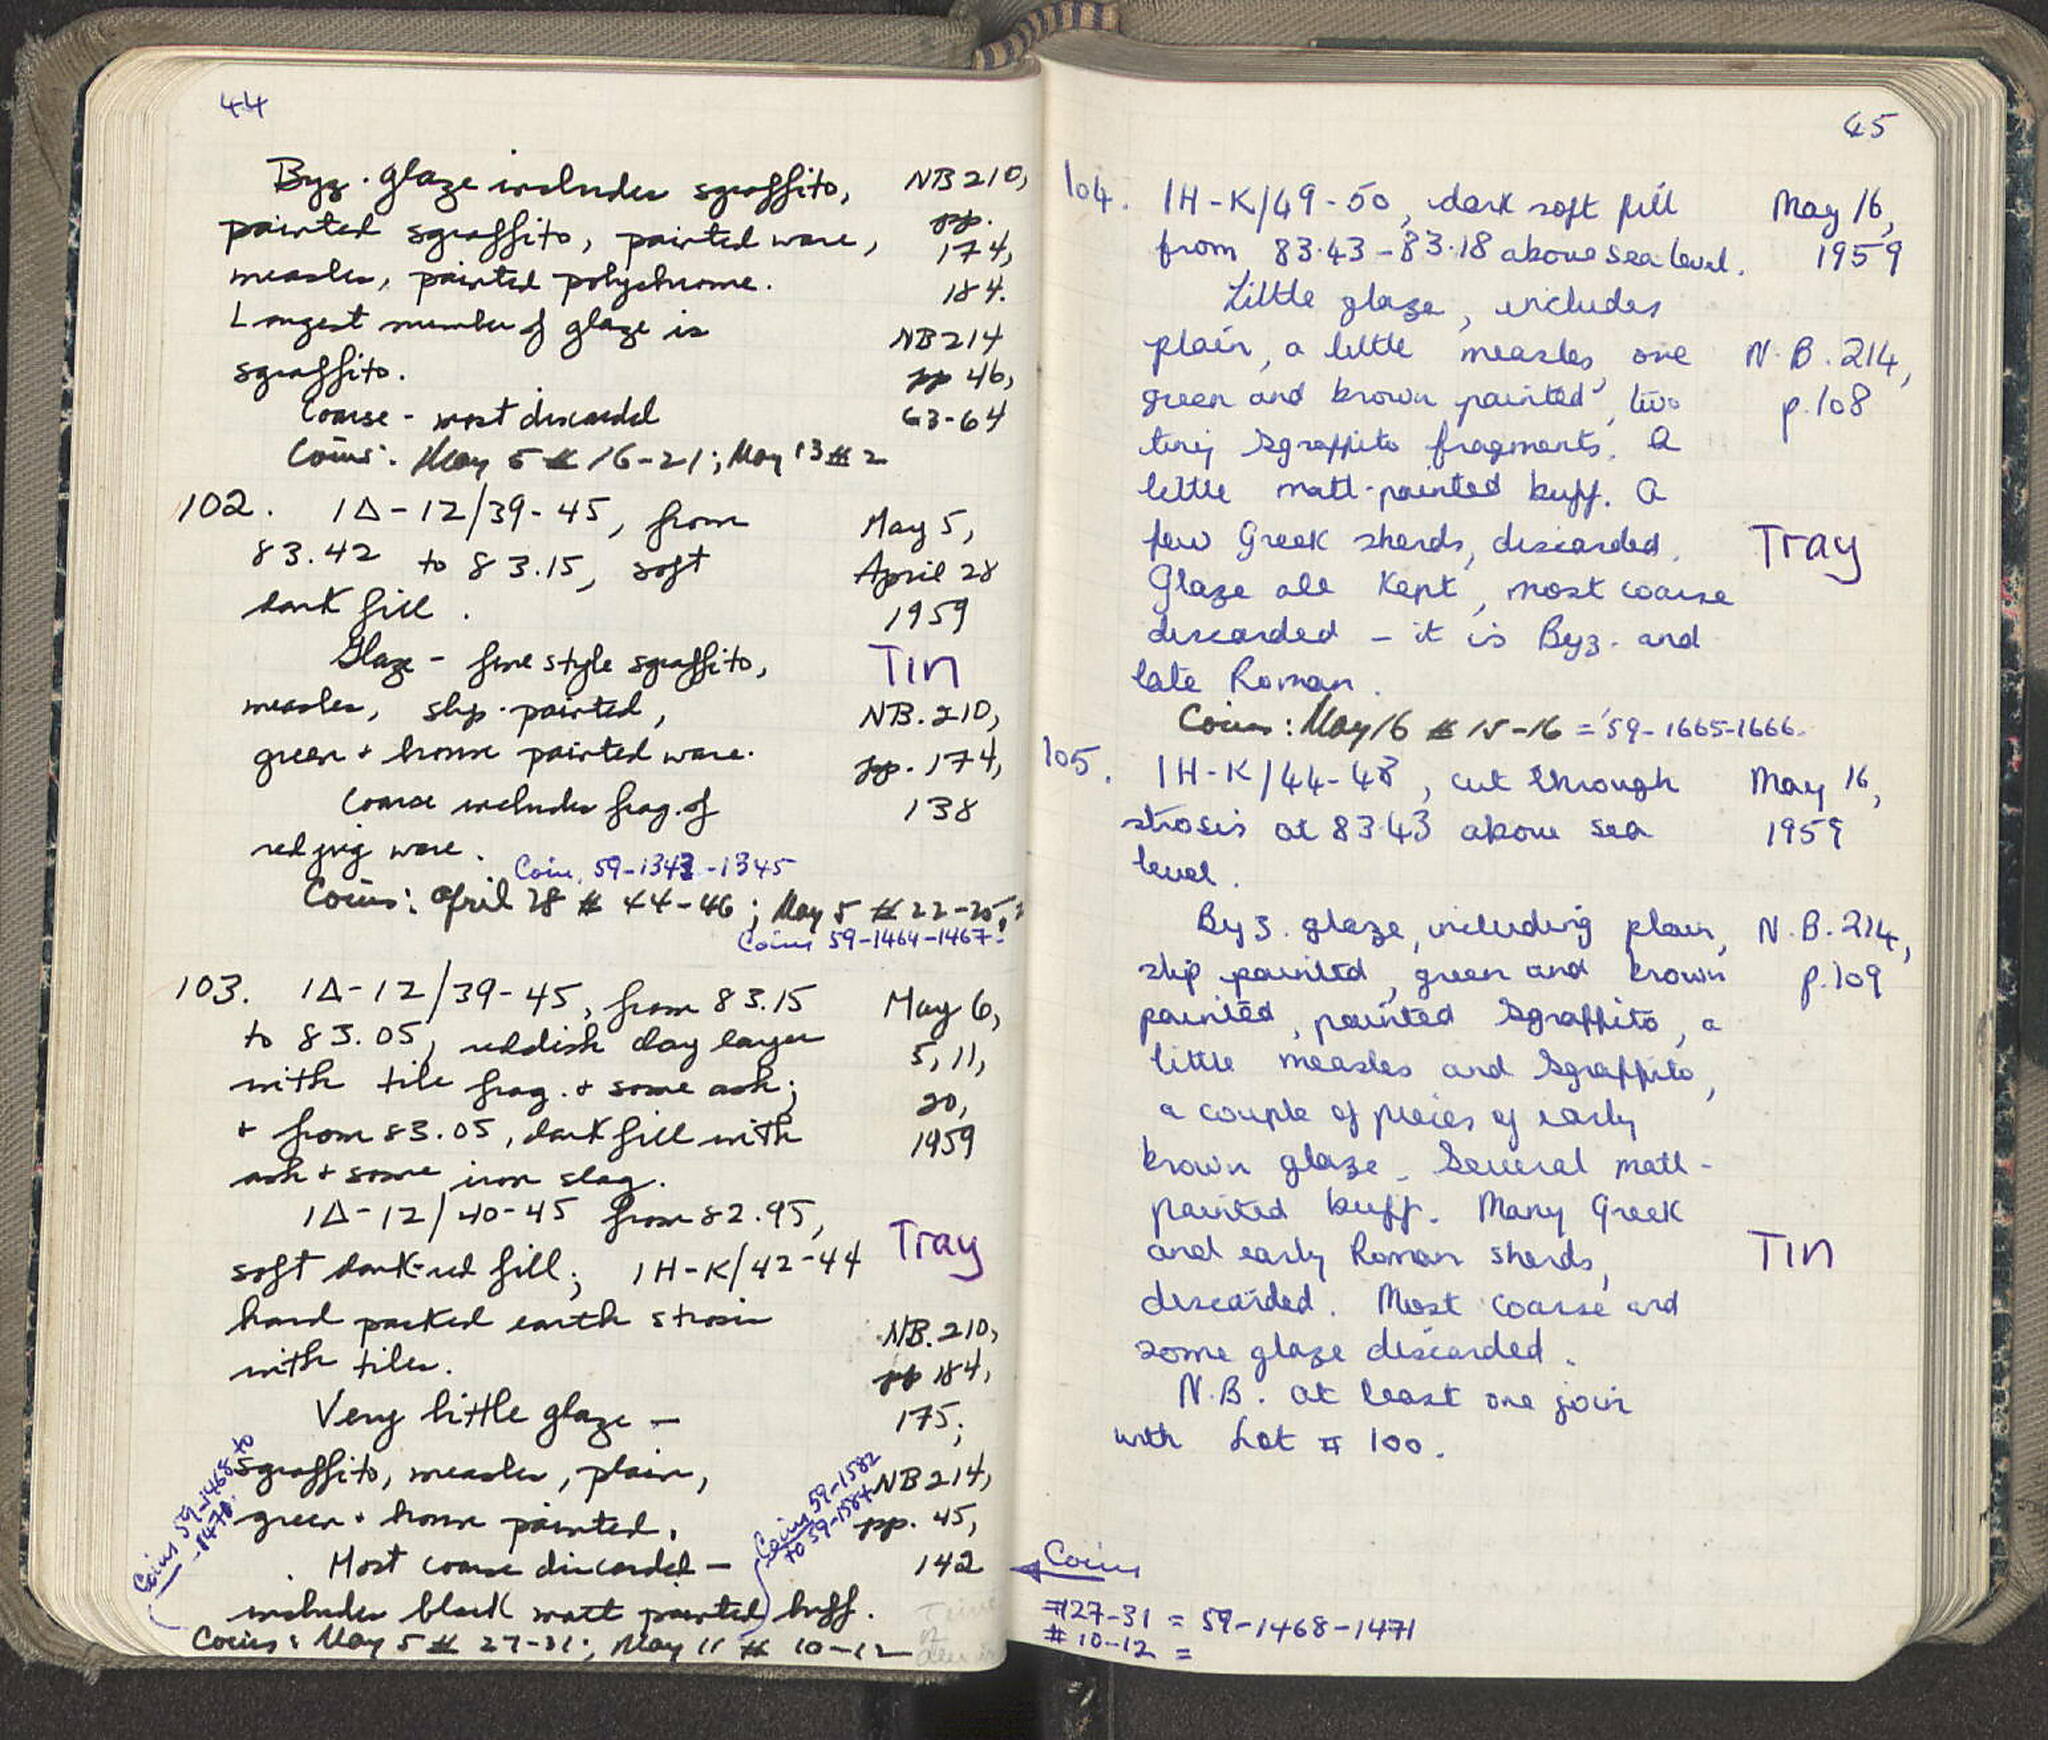 44
Byz. glaze includes sgraffito, NB 210,
painted sgraffito, painted ware, pp. 174,
measles, painted polychrome. 184.
Largest number of glaze is NB 214
sgraffito. pp 46,
Coarse - most discarded 63-64
Coins: May 5 # 16-21; May 13 # 2
102. 1Δ-12/39-45, from May 5,
83.42 to 83.15, soft April 28
dark fill. 1959
Glaze - fine style sgraffito, Tin
measles, slip-painted, NB. 210,
green + brown painted ware. pp. 174,
Coarse includes frag. of 138
red jug ware.
Coin. 59-1343-1345
Coins: April 28 # 44-46; May 5 # 22-25,
Coins 59-1464-1467
103. 1Δ-12/39-45, from 83.15 May 6,
to 83.05, reddish clay layer 5, 11,
with tile frag. + some ash; 20,
+ from 83.05, dark fill with 1959
ash + some iron slag.
1Δ-12/40-45 from 82.95,
soft dark-red fill; 1H-K/42-44 Tray
hard packed earth strosis NB. 210,
with tiles. pp 184,
Very little glaze - 175;
sgraffito, measles, plain, NB 214,
green + brown painted. pp. 45,
Most coarse discarded - 142
includes black matt painted buff.
Coins: May 5 # 27-31; May 11 # 10-12
Coins 59-1468 to
-1470.
Coins 59-1582
to 59-1584
45
104. 1H-K/49-50, dark soft fill May 16,
from 83.43-83.18 above sea level. 1959
Little glaze, includes
plain, a little measles, one N.B. 214,
green and brown painted, two p.108
tiny sgraffito fragments. A
little matt-painted buff. A
few Greek sherds, discarded. Tray
Glaze all kept, most coarse
discarded - it is Byz. and
late Roman.
Coins: May 16 # 15-16 = 59-1665-1666.
105. 1H-K/44-48, cut through May 16,
strosis at 83.43 above sea 1959
level.
Byz. glaze, including plain, N.B. 214,
slip painted, green and brown p.109
painted, painted sgraffito, a
little measles and sgraffito,
a couple of pieces of early
brown glaze. Several matt-
painted buff. Many Greek
and early Roman sherds, Tin
discarded. Most coarse and
some glaze discarded.
N.B. at least one join
with Lot # 100.
Coins
#27-31 = 59-1468-1471
# 10-12 =